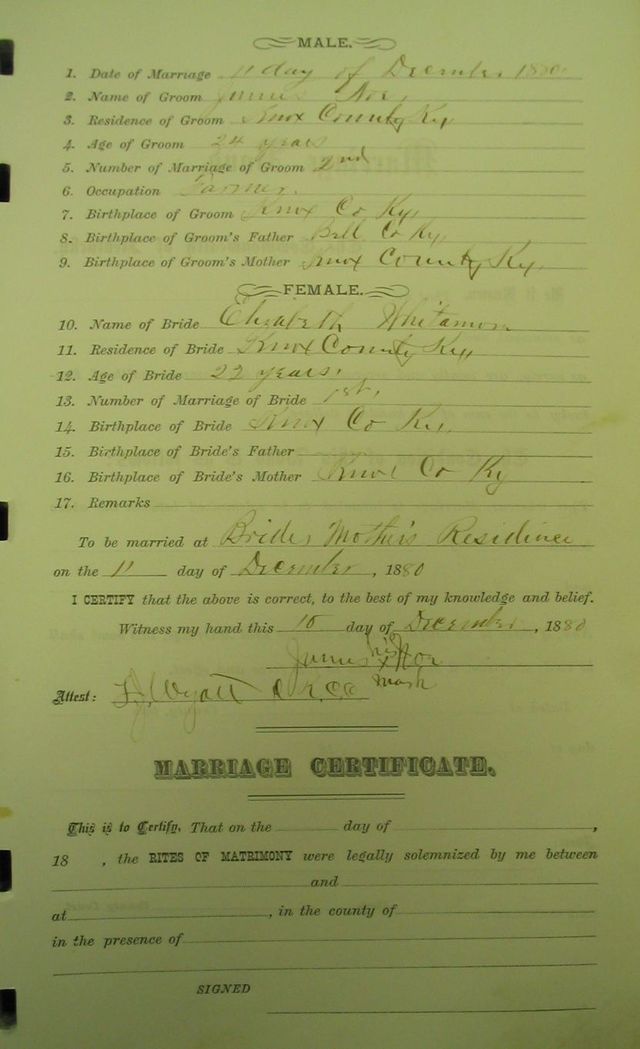 MALE.
1. Date of Marriage 11 day of December 1880
2. Name of Groom James Noe
3. Residence of Groom Knox County Ky
4. Age of Groom 24 years
5. Number of Marriage of Groom 2nd
6. Occupation Farmer.
7. Birthplace of Groom Knox Co Ky,
8. Birthplace of Groom's Father Bell Co Ky,
9. Birthplace of Groom's Mother Knox County Ky,
FEMALE.
10. Name of Bride Elizabeth
11. Residence of Bride Knox County Ky
12. Age of Bride 22 years,
13. Number of Marriage of Bride 1st,
14. Birthplace of Bride Knox Co Ky,
15. Birthplace of Bride's Father
16. Birthplace of Bride's Mother Knox Co Ky
17. Remarks
To be married at Brides Mother's Residence
on the 11 day of December, 1880
I CERTIFY that the above is correct, to the best of my knowledge and belief.
Witness my hand this 10 day of December, 1880
James his x mark Noe
Attest: Wyatt
MARRIAGE CERTIFICATE.
This is to Certify, That on the day of ,
18 , the RITES OF MATRIMONY were legally solemnized by me between
and
at , in the county of
in the presence of
SIGNED